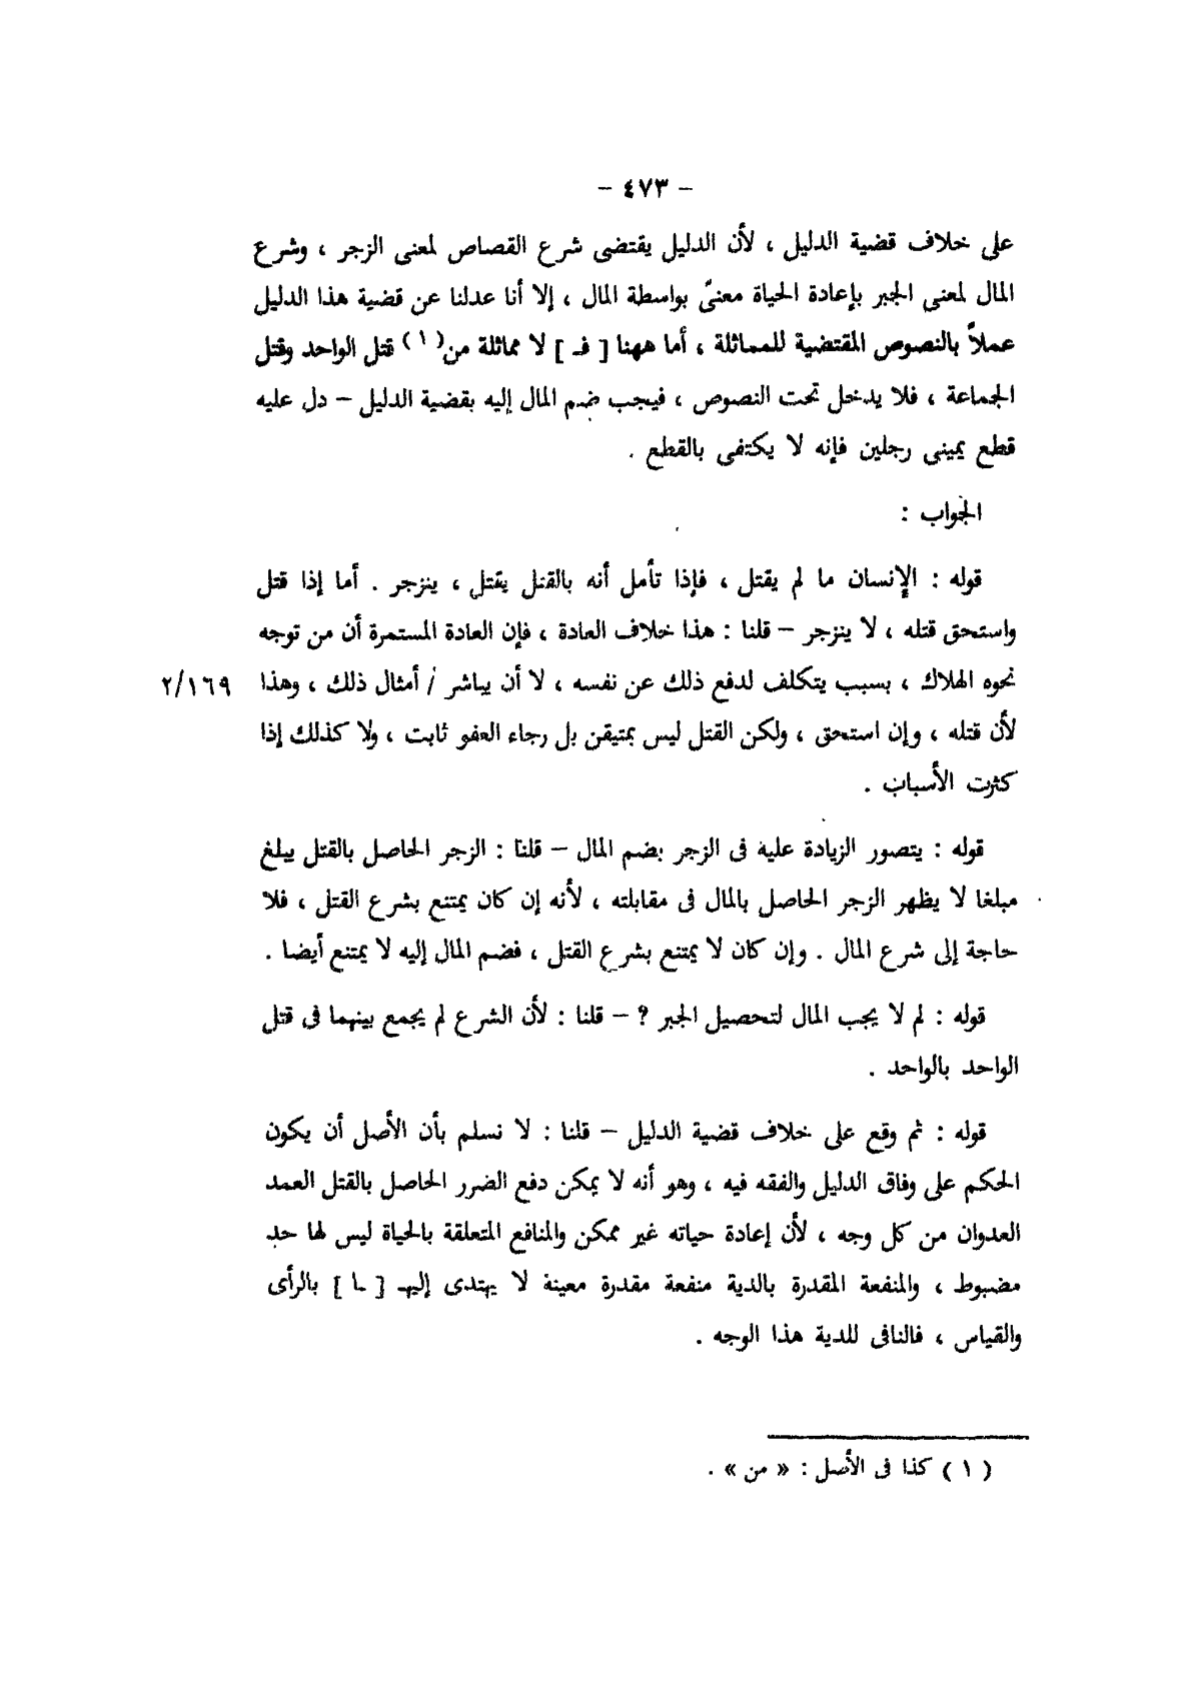 - ٤٧٣ -
على خلاف قضية الدليل ، لأن الدليل يقتضى شرع القصاص لمعنى الزجر ، وشرع
المال لمعنى الجبر بإعادة الحياة معنىً بواسطة المال ، إلا أنا عدلنا عن قضية هذا الدليل
عملاً بالنصوص المقتضية للمماثلة ، أما ههنا [ فـ ] لا مماثلة من(١) قتل الواحد وقتل
الجماعة ، فلا يدخل تحت النصوص ، فيجب ضم المال إليه بقضية الدليل – دل عليه
قطع يمينى رجلين فإنه لا يكتفى بالقطع .
الجواب :
قوله : الإنسان ما لم يقتل ، فإذا تأمل أنه بالقتل يقتل ، ينزجر . أما إذا قتل
واستحق قتله ، لا ينزجر – قلنا : هذا خلاف العادة ، فإن العادة المستمرة أن من توجه
نحوه الهلاك ، بسبب يتكلف لدفع ذلك عن نفسه ، لا أن يباشر / أمثال ذلك ، وهذا ٢/١٦٩
لأن قتله ، وإن استحق ، ولكن القتل ليس بمتيقن بل رجاء العفو ثابت ، ولا كذلك إذا
كثرت الأسباب .
قوله : يتصور الزيادة عليه فى الزجر بضم المال – قلنا : الزجر الحاصل بالقتل يبلغ
مبلغا لا يظهر الزجر الحاصل بالمال فى مقابلته ، لأنه إن كان يمتنع بشرع القتل ، فلا
حاجة إلى شرع المال . وإن كان لا يمتنع بشرع القتل ، فضم المال إليه لا يمتنع أيضا .
قوله : لم لا يجب المال لتحصيل الجبر ؟ – قلنا : لأن الشرع لم يجمع بينهما فى قتل
الواحد بالواحد .
قوله : ثم وقع على خلاف قضية الدليل – قلنا : لا نسلم بأن الأصل أن يكون
الحكم على وفاق الدليل والفقه فيه ، وهو أنه لا يمكن دفع الضرر الحاصل بالقتل العمد
العدوان من كل وجه ، لأن إعادة حياته غير ممكن والمنافع المتعلقة بالحياة ليس لها حد
مضبوط ، والمنفعة المقدرة بالدية منفعة مقدرة معينة لا يهتدى إليهـ [ ـا ] بالرأى
والقياس ، فالنافى للدية هذا الوجه .
( ١ ) كذا فى الأصل : « من » .